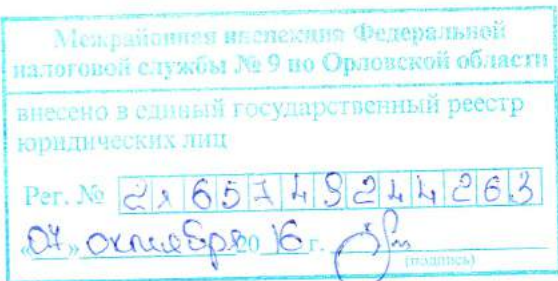 Межрайонная инспекция Федеральной
налоговой службы № 9 по Орловской области
внесено в единый государственный реестр
юридических лиц
Рег. № 2165749244263
«07» октября 2016 г.
(подпись)